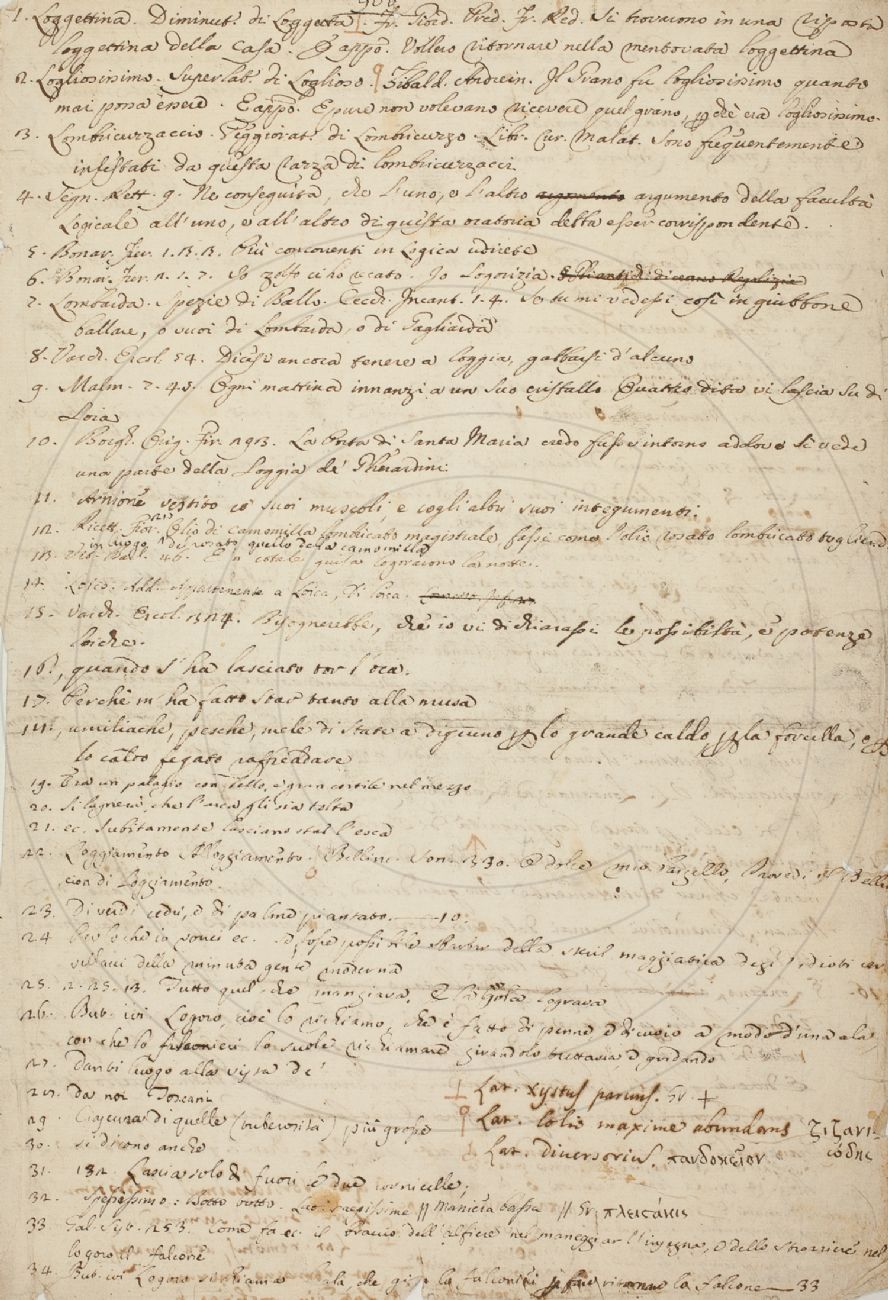 908
1. Loggettina. Diminut. di Loggetta Fr. Giord. Pred. Fr. Red. Si trovarono in una riposta
loggettina della casa. E appo. Vollero ritornare nella mentovata loggettina
2. Loglioso. Superlat. di Loglioso. Tibald. Andrein. Il grano fu logliosissimo quanto
mai possa essere. E appo. Epure non volevano ricevere quel grano, era logliosissimo.
3. Lombricuzzaccio. Peggiorat. di Lombricuzzo. Libr. Cur. Malat. Sono frequentemente
infestati da questa razza di lombricuzzacci
4. Segn. Rett. 9. Ne conseguirà, che l'uno, e l'altro argomento argumento della facultà
Logicale all'uno, e all'altro di questa oratoria detta esser corrispondente.
5. Bonar. Fier. 1. 3. 3. Più concorrenti in Logica udirete
6. Bonar. Fier. 2. 1. 7. Io zolfo ci ho recato. Io Logorizia.
7. Lombarda. Spezie di Ballo. Cecch. Incant. 1. 4. Se tu mi vedessi così in giubbone
ballare, o vuoi di Lombarda, o di Gagliarda
8. Varch. Ercol. 54. Dicesi ancora tenere a loggia, gabbarsi d'alcuno
9. Malm. 2. 45. Ogni mattina innanzi a un suo cristallo Quattro dita vi lascia su di
Loia
10. Borgh. Orig. Fir. 293. La Porta di Santa Maria credo fusse intorno addove si vede
una parte della Loggia de' Gherardini
11. Arnione vestito co' suoi muscoli, e cogli altri suoi integumenti.
12. Ricett. Fior. Olio di camomilla lombicato magistrale, fassi come l'olio rosato lombicato togliendo
in luogo di rosato quello della camomilla
13. 46. E 'n cotale guisa logorarono la notte.
14. Loico. Add. Appartenente a Loica, Di loica.
15. Varch. Ercol. Bisognerebbe, che io vi dichiarassi le possibilità, e potenze
loiche.
16. , quando s'ha lasciato tor l'oca.
17. Perchè m'ha fatto star tanto alla musa
18. , umiliache, pesche, mele di state a digiuno lo grande caldo la forcella, e
lo caldo fegato raffreddare
19. Era un palagio con bello, e gran cortile nel mezzo
20. Si lagnerà, che l'arca gli sia tolta
21. ec. Subitamente lasciano star l'esca
22. Loggiamento Alloggiamento. Bellin. Son. 330. O dolce mio Vasello, Provedi il Belli-
cion di Loggiamento.
23. Di verdi cedri, e di palme piantato. — 10.
24. Per lo che io vorrei ec. della stil maggiatica degi' idioti cer
villacci della minuta gente moderna
25. 2. 25. 13. Tutto quel che mangiava, E la gola lograva
26. But. ivi Logoro, cioè lo richiamo, che è fatto di penne e di cuoio a modo d'una ala,
con che lo falconieri lo suole richiamare girandolo tuttavia e gridando
27. Darebbi luogo alla vista de'
28. da noi Toscani
29. Ciascuna di quelle (tuberosità) più grosse
30. si dicono anche
31. 182. Lascia solo di fuori le due cornicelle;
32. Spesissimo: Botto botto. Lat. saepissime // Manicia bassa // Gr. πλειστάκις
33 Gal. Sist. 253. Come fa ec. il braccio dell'alfiere nel maneggiar l'insegna, e dello strozziere nel
logoro il falcone
34. But. ivi Logoro si chiama l'ala, che gira lo falconieri fare ritornare lo falcone — 33
Lat. xystus parvus. Gr. +
Lat. lolio maxime abundans ζιζανι-
ώδης
Lat. diversorius. πανδοκεῖον